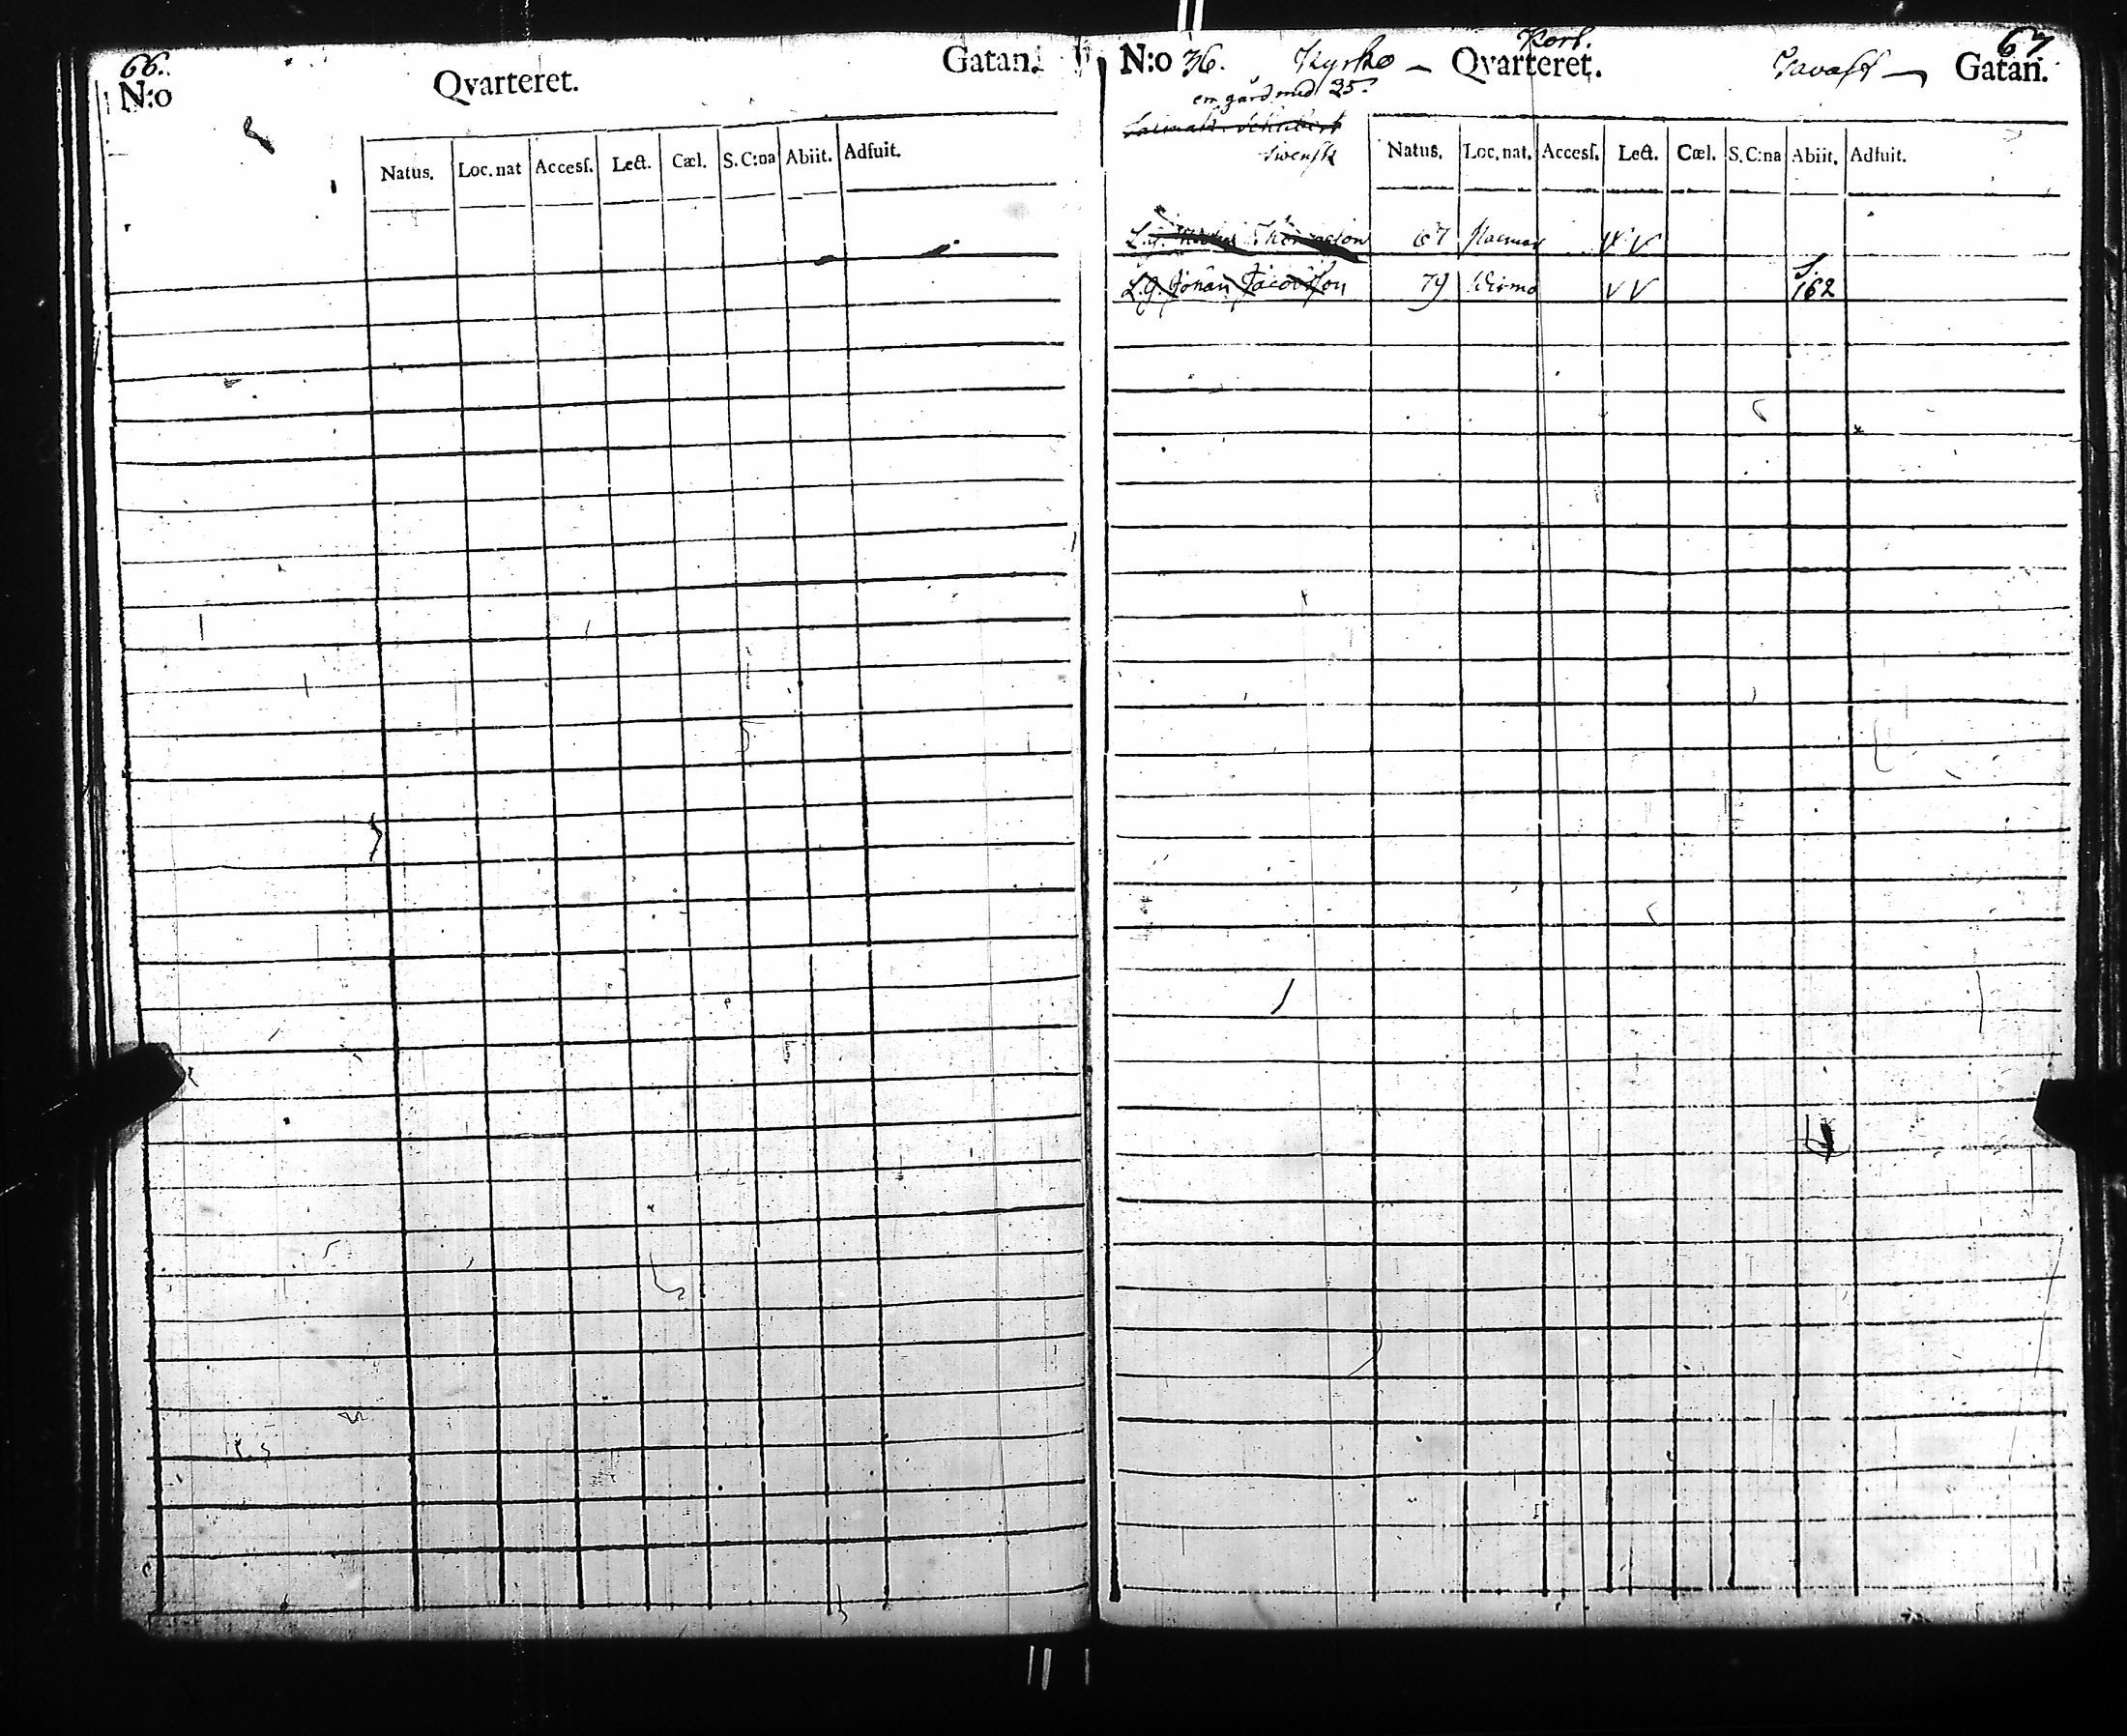 66.
N:o Qvarteret. Gatan.
Natus. Loc. nat Accesſ. Lect. Cæl. S. C:na Abiit. Adfuit.
67
N:o 36. Kyrko - Qvarteret. Tavast - Gatan.
en gård med 35.
Swensk
Natus. Loc. nat. Accesſ. Lect. Cæl. S. C:na Abiit. Adfuit.
67 V
L. G. Johan Jacobsson 79 Wirmo V V S. 162